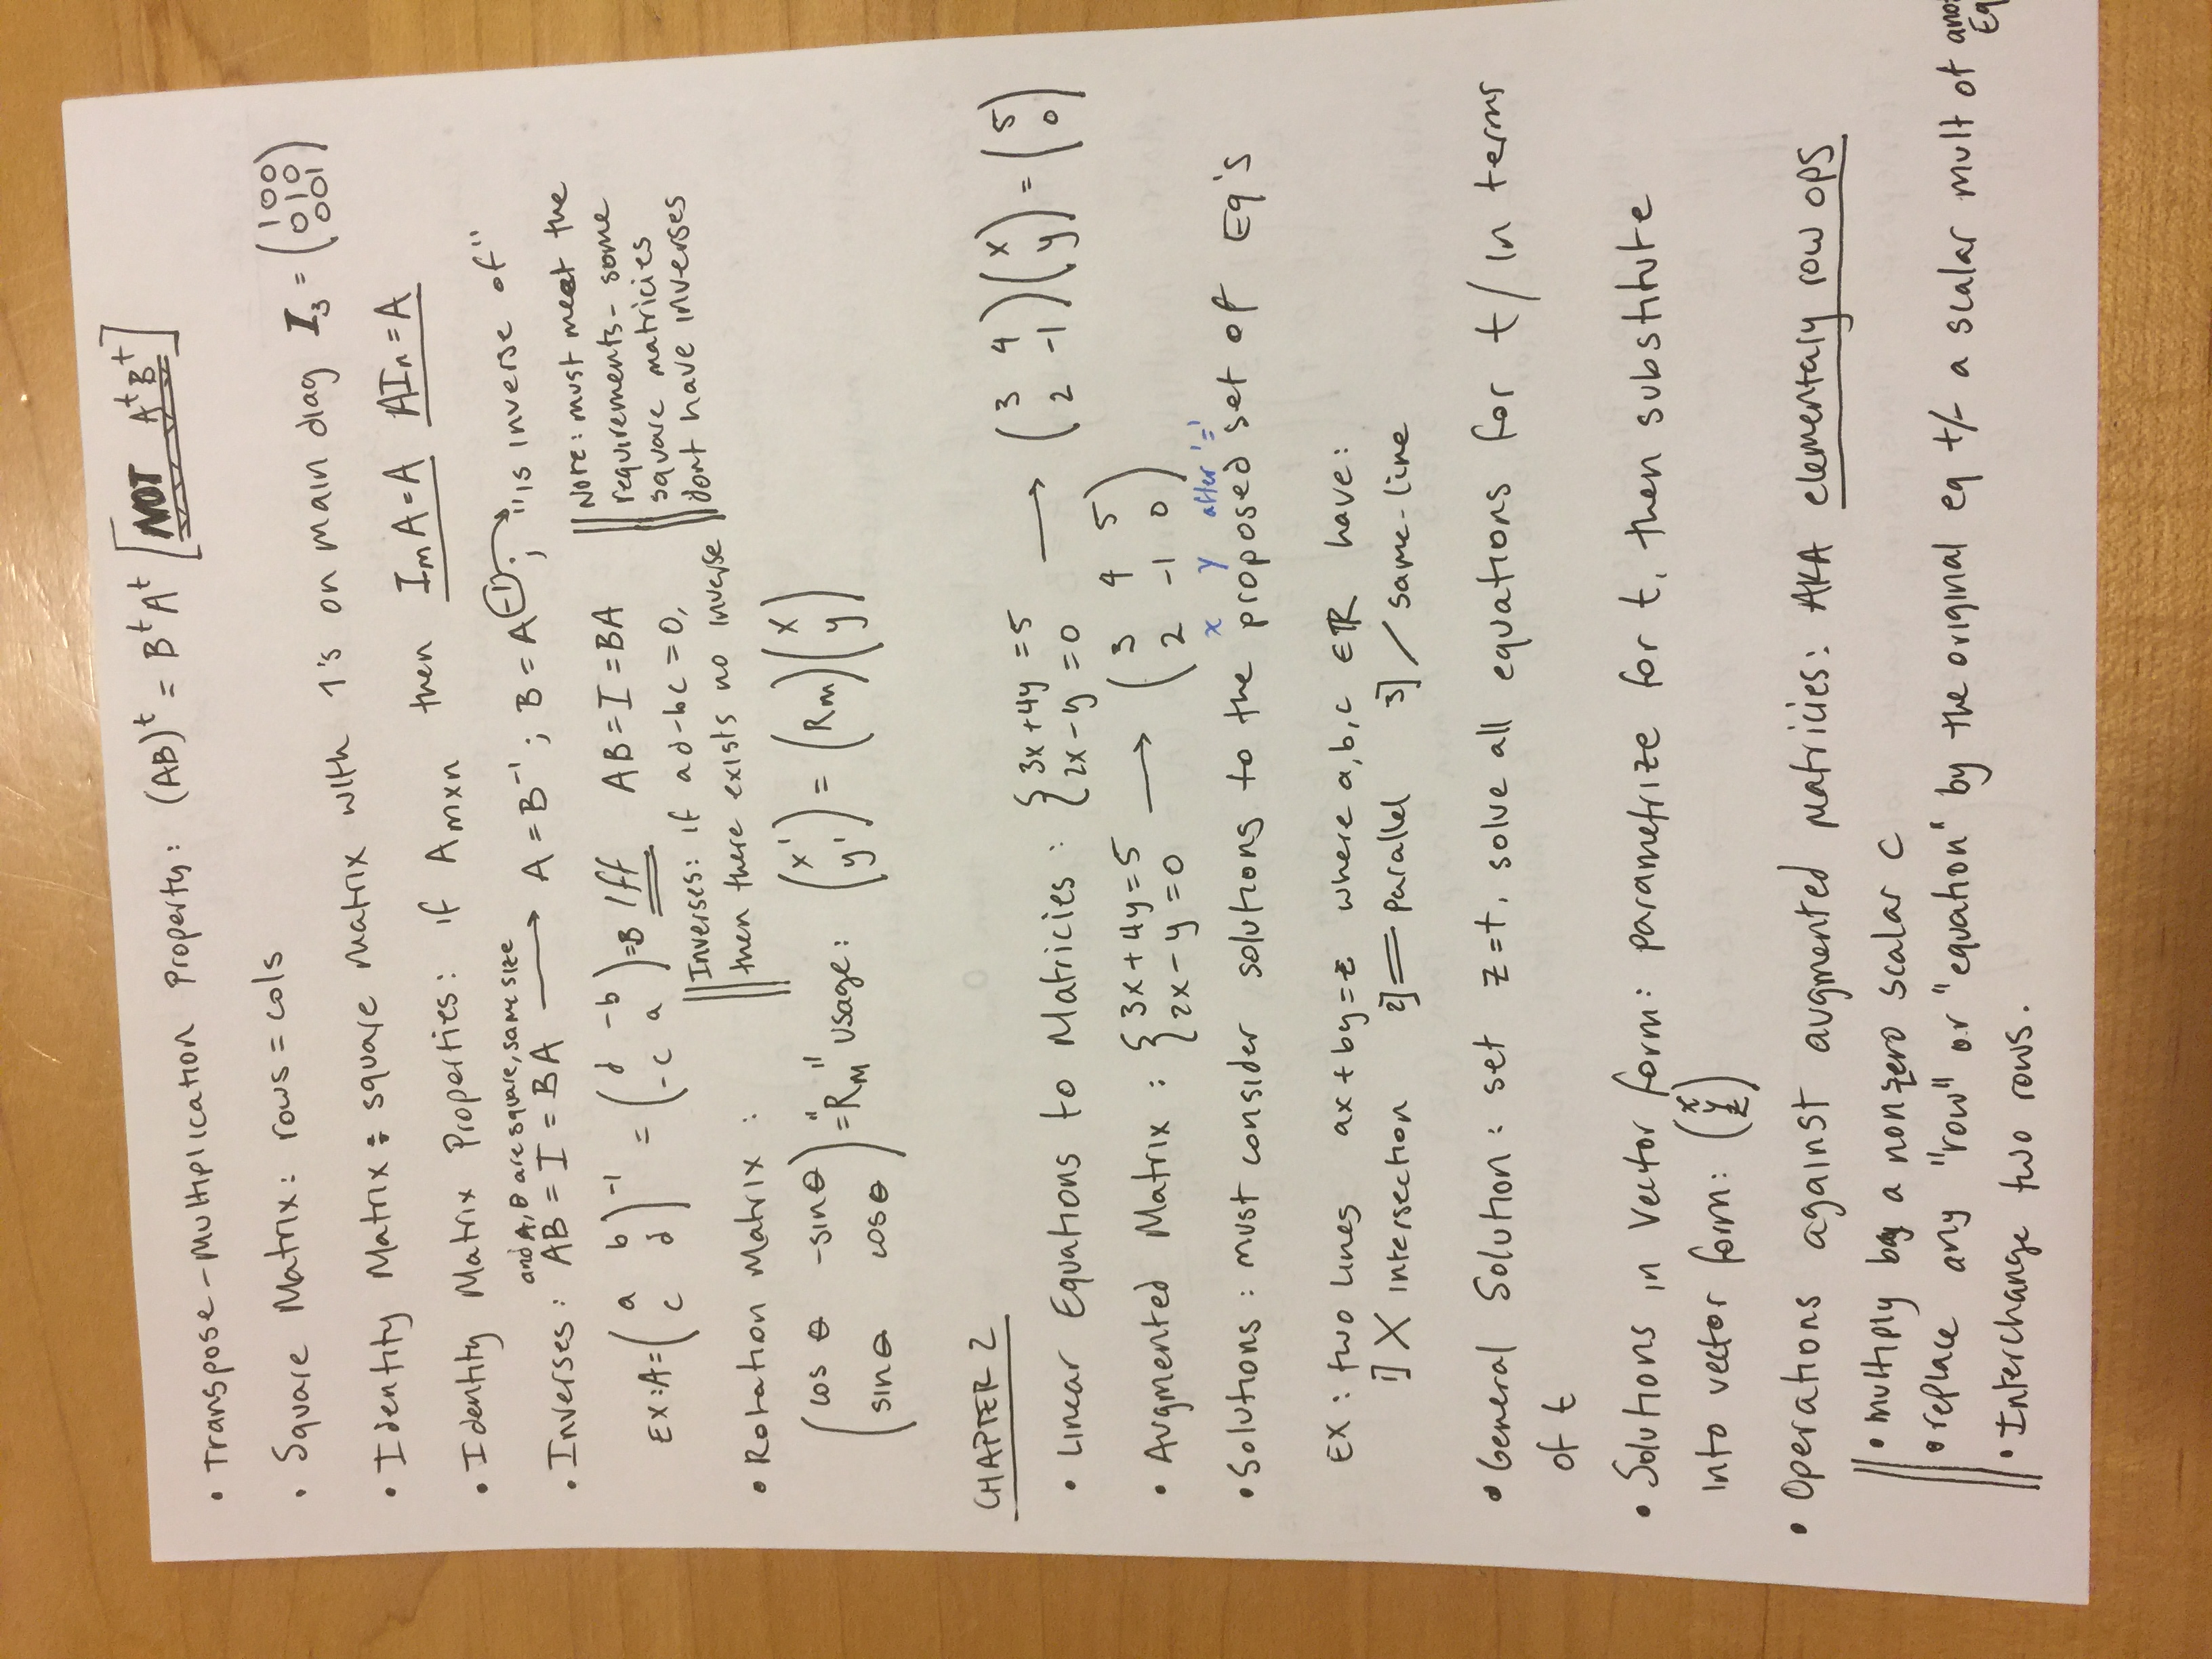 • Transpose-Multiplication Property: (AB)^t = B^t A^t [NOT A^t B^t]
• Square Matrix: rows = cols
• Identity Matrix: square matrix with 1's on main diag I_3 = (1 0 0
0 1 0
0 0 1)
• Identity Matrix Properties: if A_mxn then I_m A = A AI_n = A
and A, B are square, same size
• Inverses: AB = I = BA → A = B^-1 ; B = A^-1 ; → "is inverse of"
Ex: A = (a b
c d)^-1 = (d -b
-c a) = B iff AB = I = BA
|| Note: must meet the
requirements - some
square matricies
dont have inverses
|| Inverses: if ad-bc = 0,
then there exists no inverse
• Rotation Matrix :
(cos θ -sin θ
sin θ cos θ) = "R_M" usage: (x'
y') = (R_m)(x
y)
CHAPTER 2
• Linear Equations to Matricies : {3x+4y = 5
2x-y = 0 → (3 4
2 -1)(x
y) = (5
0)
• Augmented Matrix : {3x+4y=5
2x-y=0 → (3 4 5
2 -1 0)
x y after '='
• Solutions : must consider solutions to the proposed set of Eq's
EX : two lines ax + by = c where a, b, c ∈ ℝ have :
1] X intersection 2] = parallel 3] / same-line
• General Solution : set z=t, solve all equations for t / in terms
of t
• Solutions in Vector form: parametrize for t, then substitute
into vector form: (x
y
z)
• Operations against augmented matricies: AKA elementary row ops
• multiply by a nonzero scalar c
• replace any "row" or "equation" by the original eq +/- a scalar mult of
Eq
• Interchange two rows.